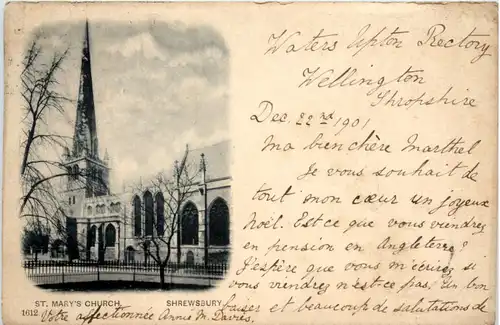 Waters Upton Rectory
Wellington
Shropshire
Dec. 22rd 1901
Ma bien chère Marthel
Je vous souhait de
tout mon cœur un joyeux
Noël. Est-ce que vous viendrez
en pension en Angleterre?
J'espère que vous m'écrirez si
vous viendrez n'est-ce pas. Un bon
baiser et beaucoup de salutations de
Votre affectionnée Annie M. Davies.
ST. MARY'S CHURCH, SHREWSBURY
1612